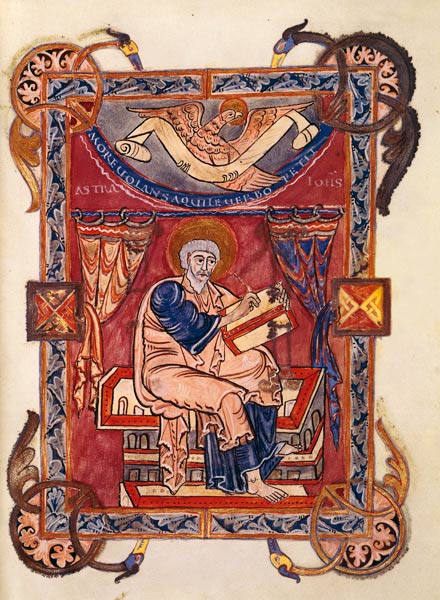 MORE VOLANS AQUILE VERBO PETIT
ASTRA IOHIS